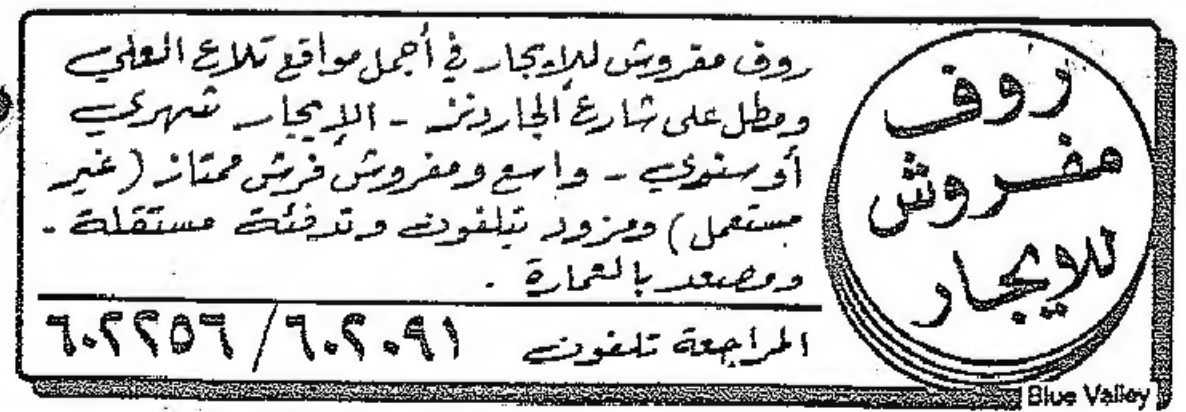 روف
مفروش
للإيجار
روف مفروش للإيجار في أجمل مواقع تلاع العلي
ومطل على شارع الجاردنز - الإيجار شهري
أو سنوي - واسع ومفروش فرش ممتاز (غير
مستعمل) ومزود بتلفون وتدفئة مستقلة -
ومصعد بالعمارة .
المراجعة تلفون ٦٠٢٠٩١ / ٦٠٢٢٥٦
Blue Valley